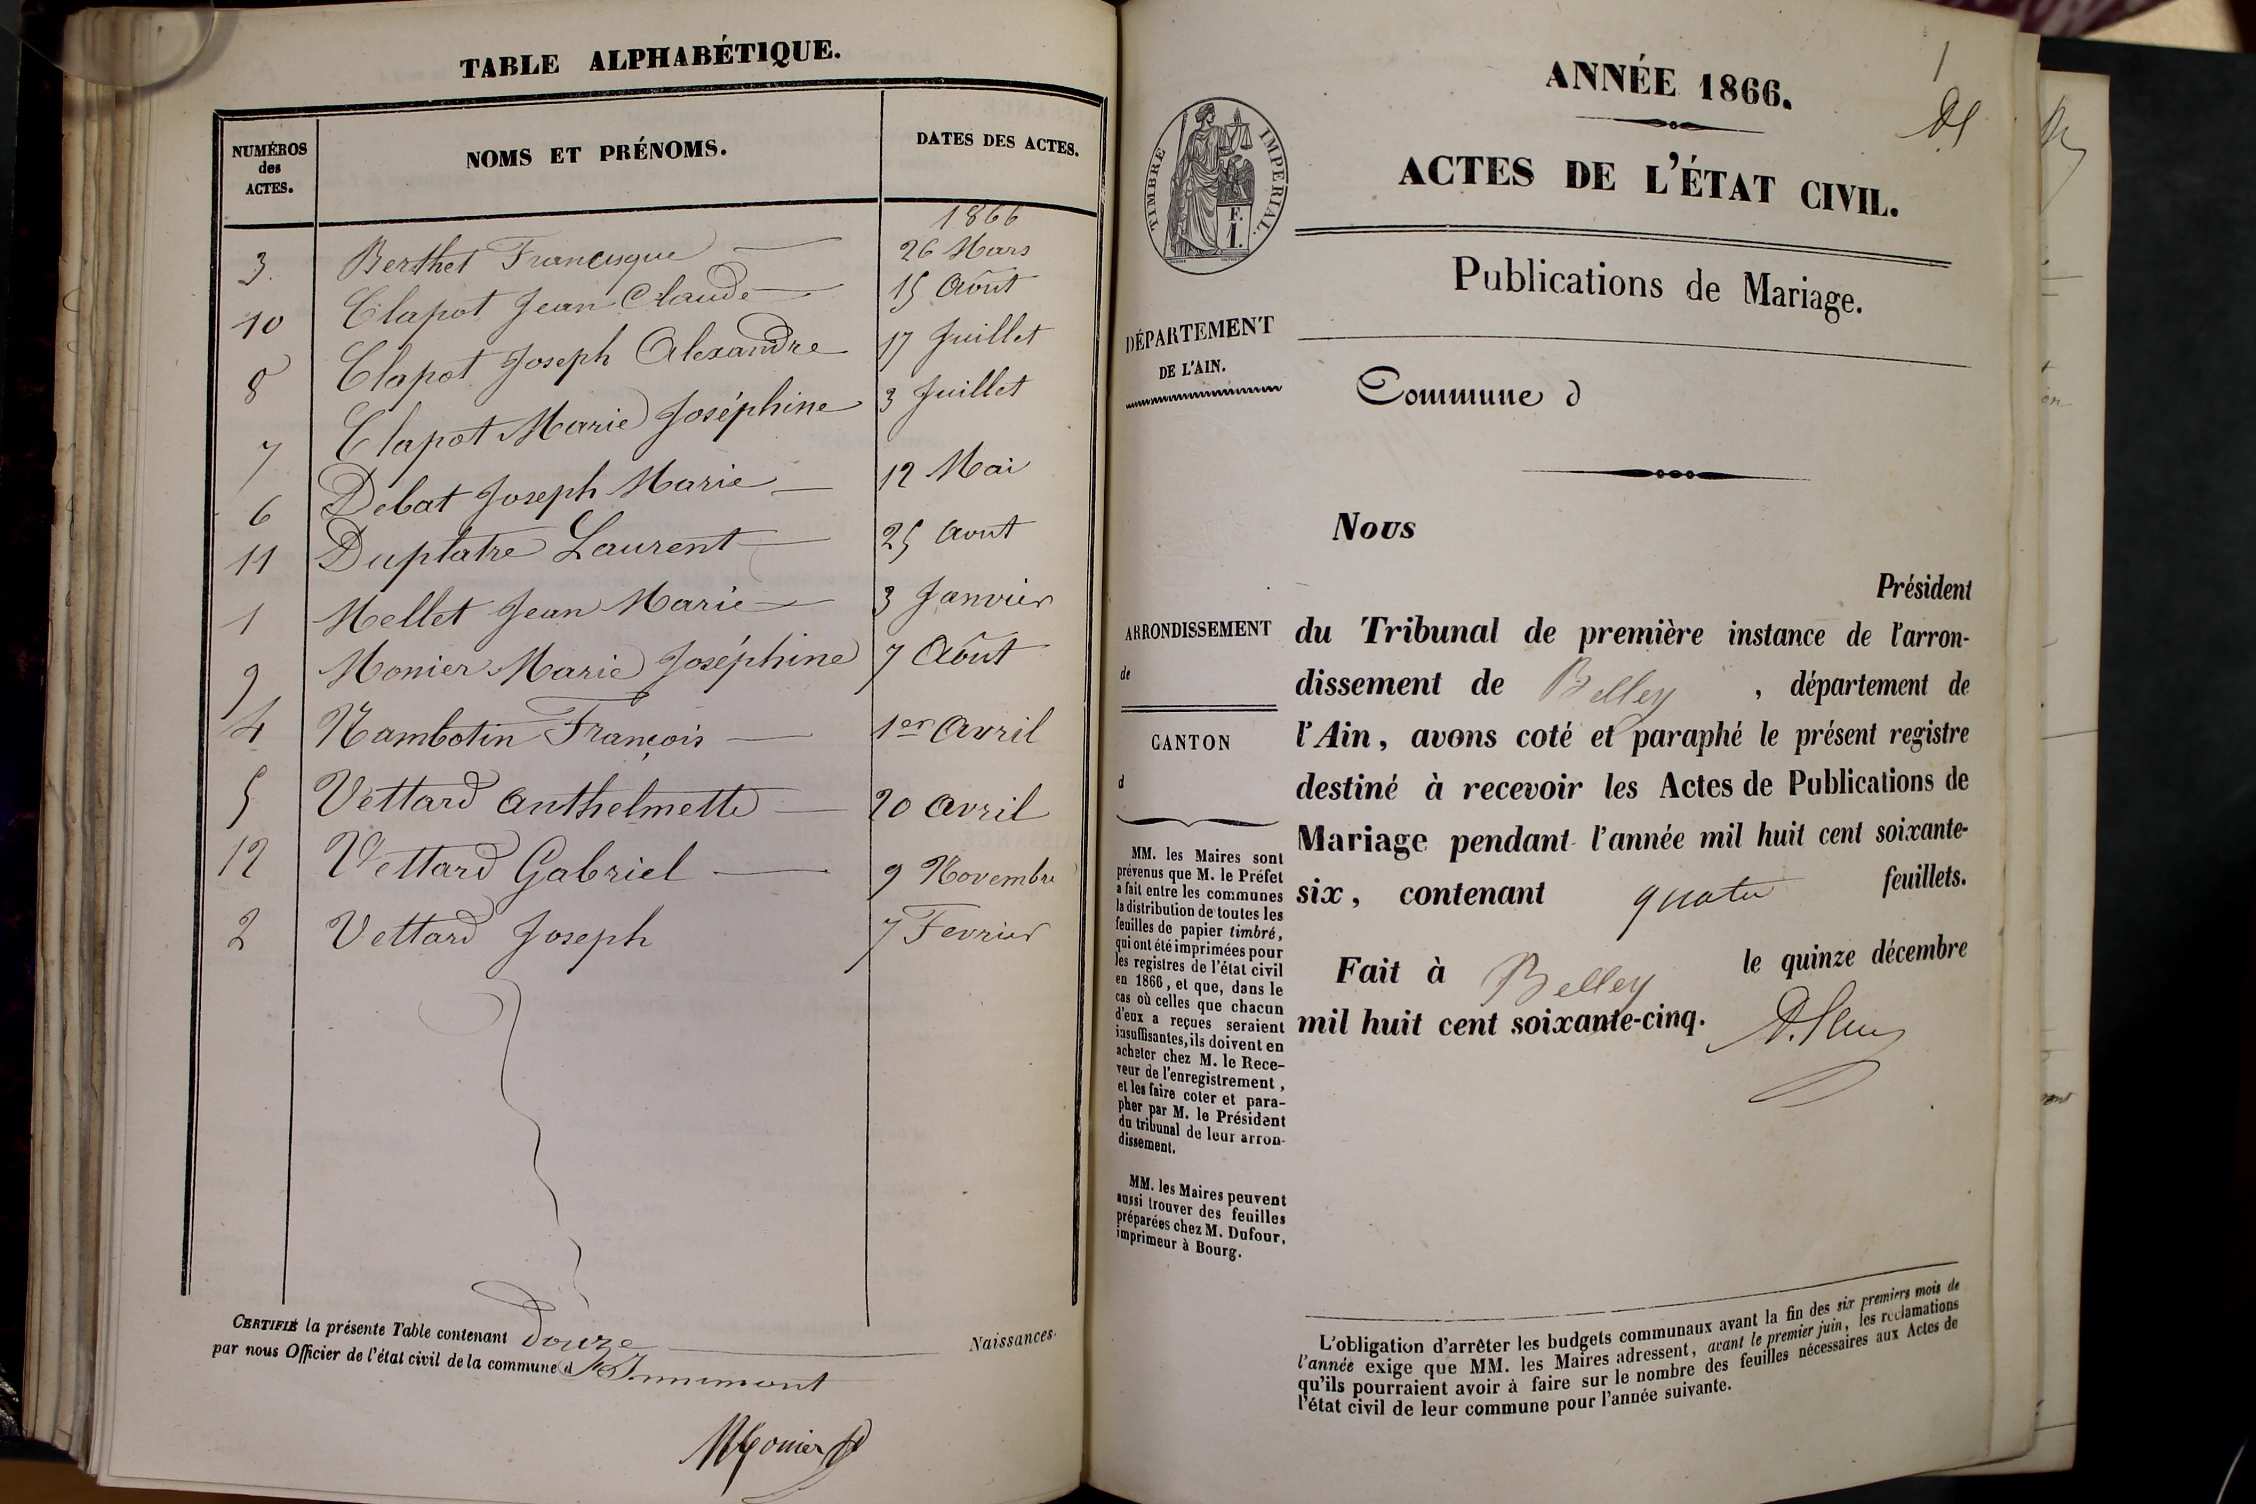 TABLE ALPHABÉTIQUE.
NUMÉROS des ACTES.
NOMS ET PRÉNOMS.
DATES DES ACTES.
1866
3 Berthet Francisque 26 Mars
10 Clapot Jean Claude 15 Août
8 Clapot Joseph Alexandre 17 Juillet
7 Clapot Marie Joséphine 3 Juillet
6 Debat Joseph Marie 12 Mai
11 Duplatre Laurent 25 Aout
1 Mellet Jean Marie 3 Janvier
9 Monier Marie Joséphine 7 Août
4 Nambotin François 1er Avril
5 Vettard Anthelmette 20 Avril
12 Vettard Gabriel 9 Novembre
2 Vettard Joseph 7 Fevrier
CERTIFIÉ la présente Table contenant Douze Naissances.
par nous Officier de l'état civil de la commune d'Innimont
Monier
1
ANNÉE 1866.
ACTES DE L'ÉTAT CIVIL.
Publications de Mariage.
TIMBRE IMPERIAL.
F.
1.
DÉPARTEMENT
DE L'AIN.
Commune d
Nous
Président
du Tribunal de première instance de l'arron-
dissement de Belley , département de
l'Ain, avons coté et paraphé le présent registre
destiné à recevoir les Actes de Publications de
Mariage pendant l'année mil huit cent soixante-
six, contenant quatre feuillets.
Fait à Belley le quinze décembre
mil huit cent soixante-cinq.
ARRONDISSEMENT
de
CANTON
d
MM. les Maires sont
prévenus que M. le Préfet
a fait entre les communes
la distribution de toutes les
feuilles de papier timbré,
qui ont été imprimées pour
les registres de l'état civil
en 1866, et que, dans le
cas où celles que chacun
d'eux a reçues seraient
insuffisantes, ils doivent en
acheter chez M. le Rece-
veur de l'enregistrement,
et les faire coter et para-
pher par M. le Président
du tribunal de leur arron-
dissement.
MM. les Maires peuvent
aussi trouver des feuilles
préparées chez M. Dufour,
imprimeur à Bourg.
L'obligation d'arrêter les budgets communaux avant la fin des six premiers mois de
l'année exige que MM. les Maires adressent, avant le premier juin, les réclamations
qu'ils pourraient avoir à faire sur le nombre des feuilles nécessaires aux Actes de
l'état civil de leur commune pour l'année suivante.